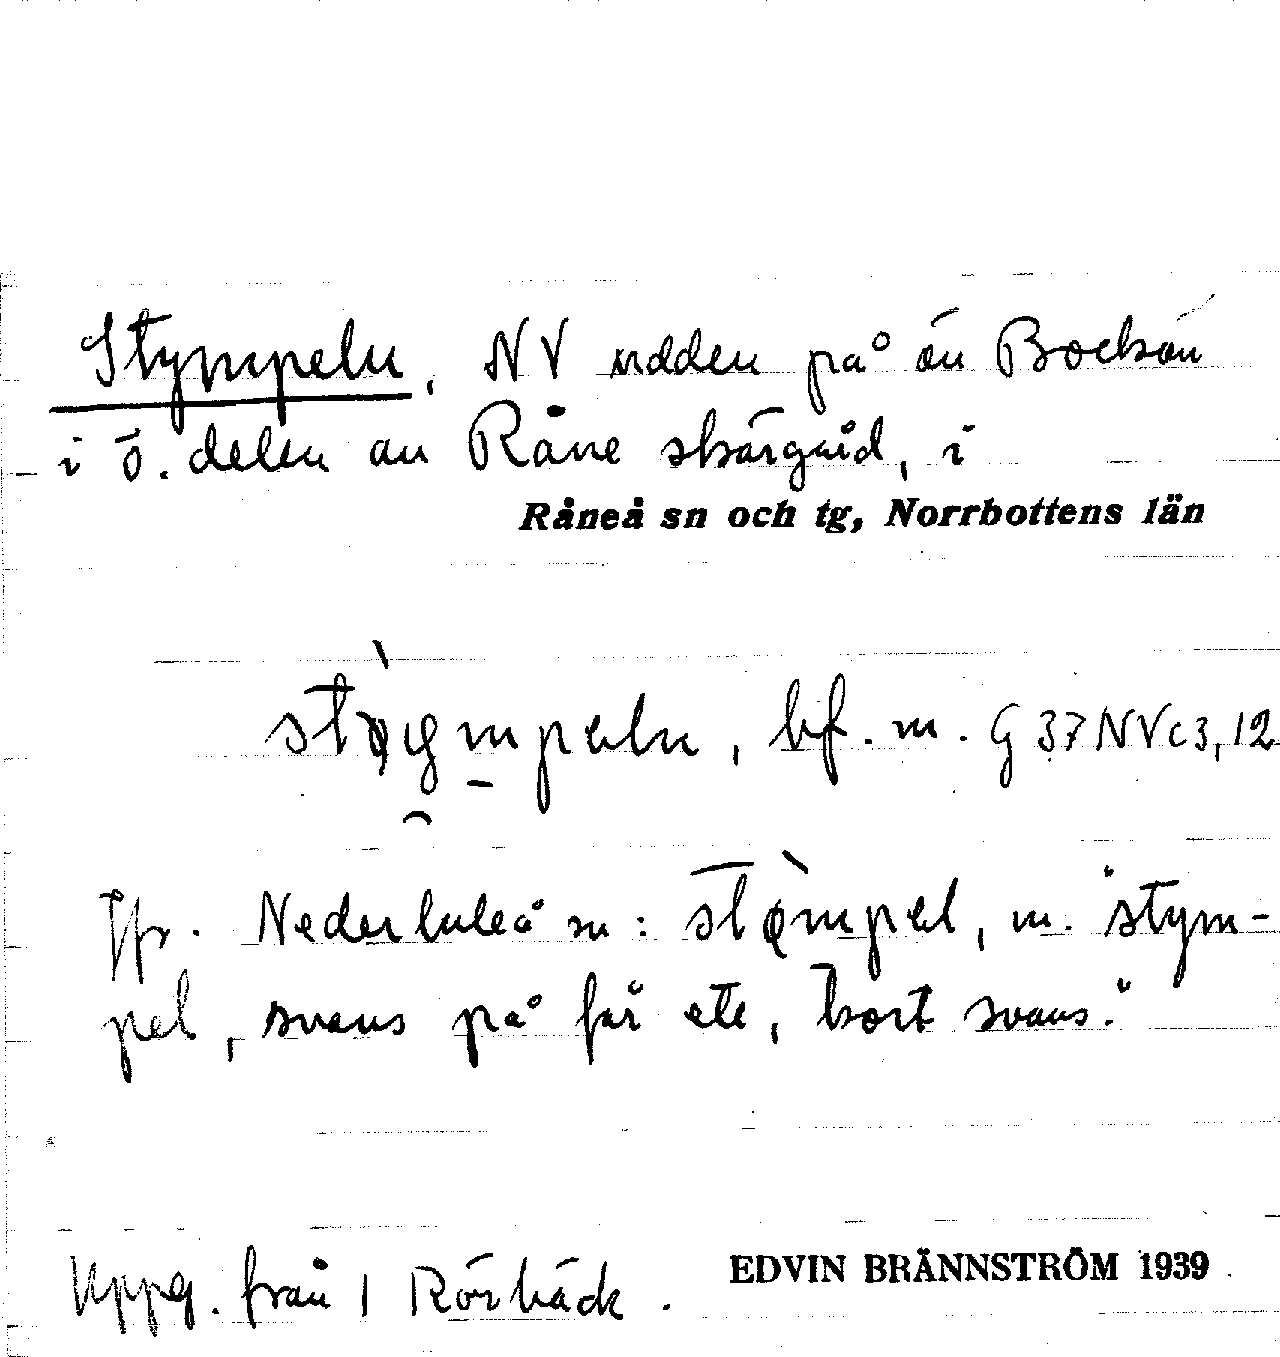 Stympeln, NV udden på ön Bockön
i ö. delen av Råne skärgård, i
Råneå sn och tg, Norrbottens län
bf. m. G 37 NV c 3, 12
Jfr. Nederluleå sn: stømpel, m. "stym-
pel, svans på får etc, kort svans."
Uppg. från 1 Rörbäck.
EDVIN BRÄNNSTRÖM 1939